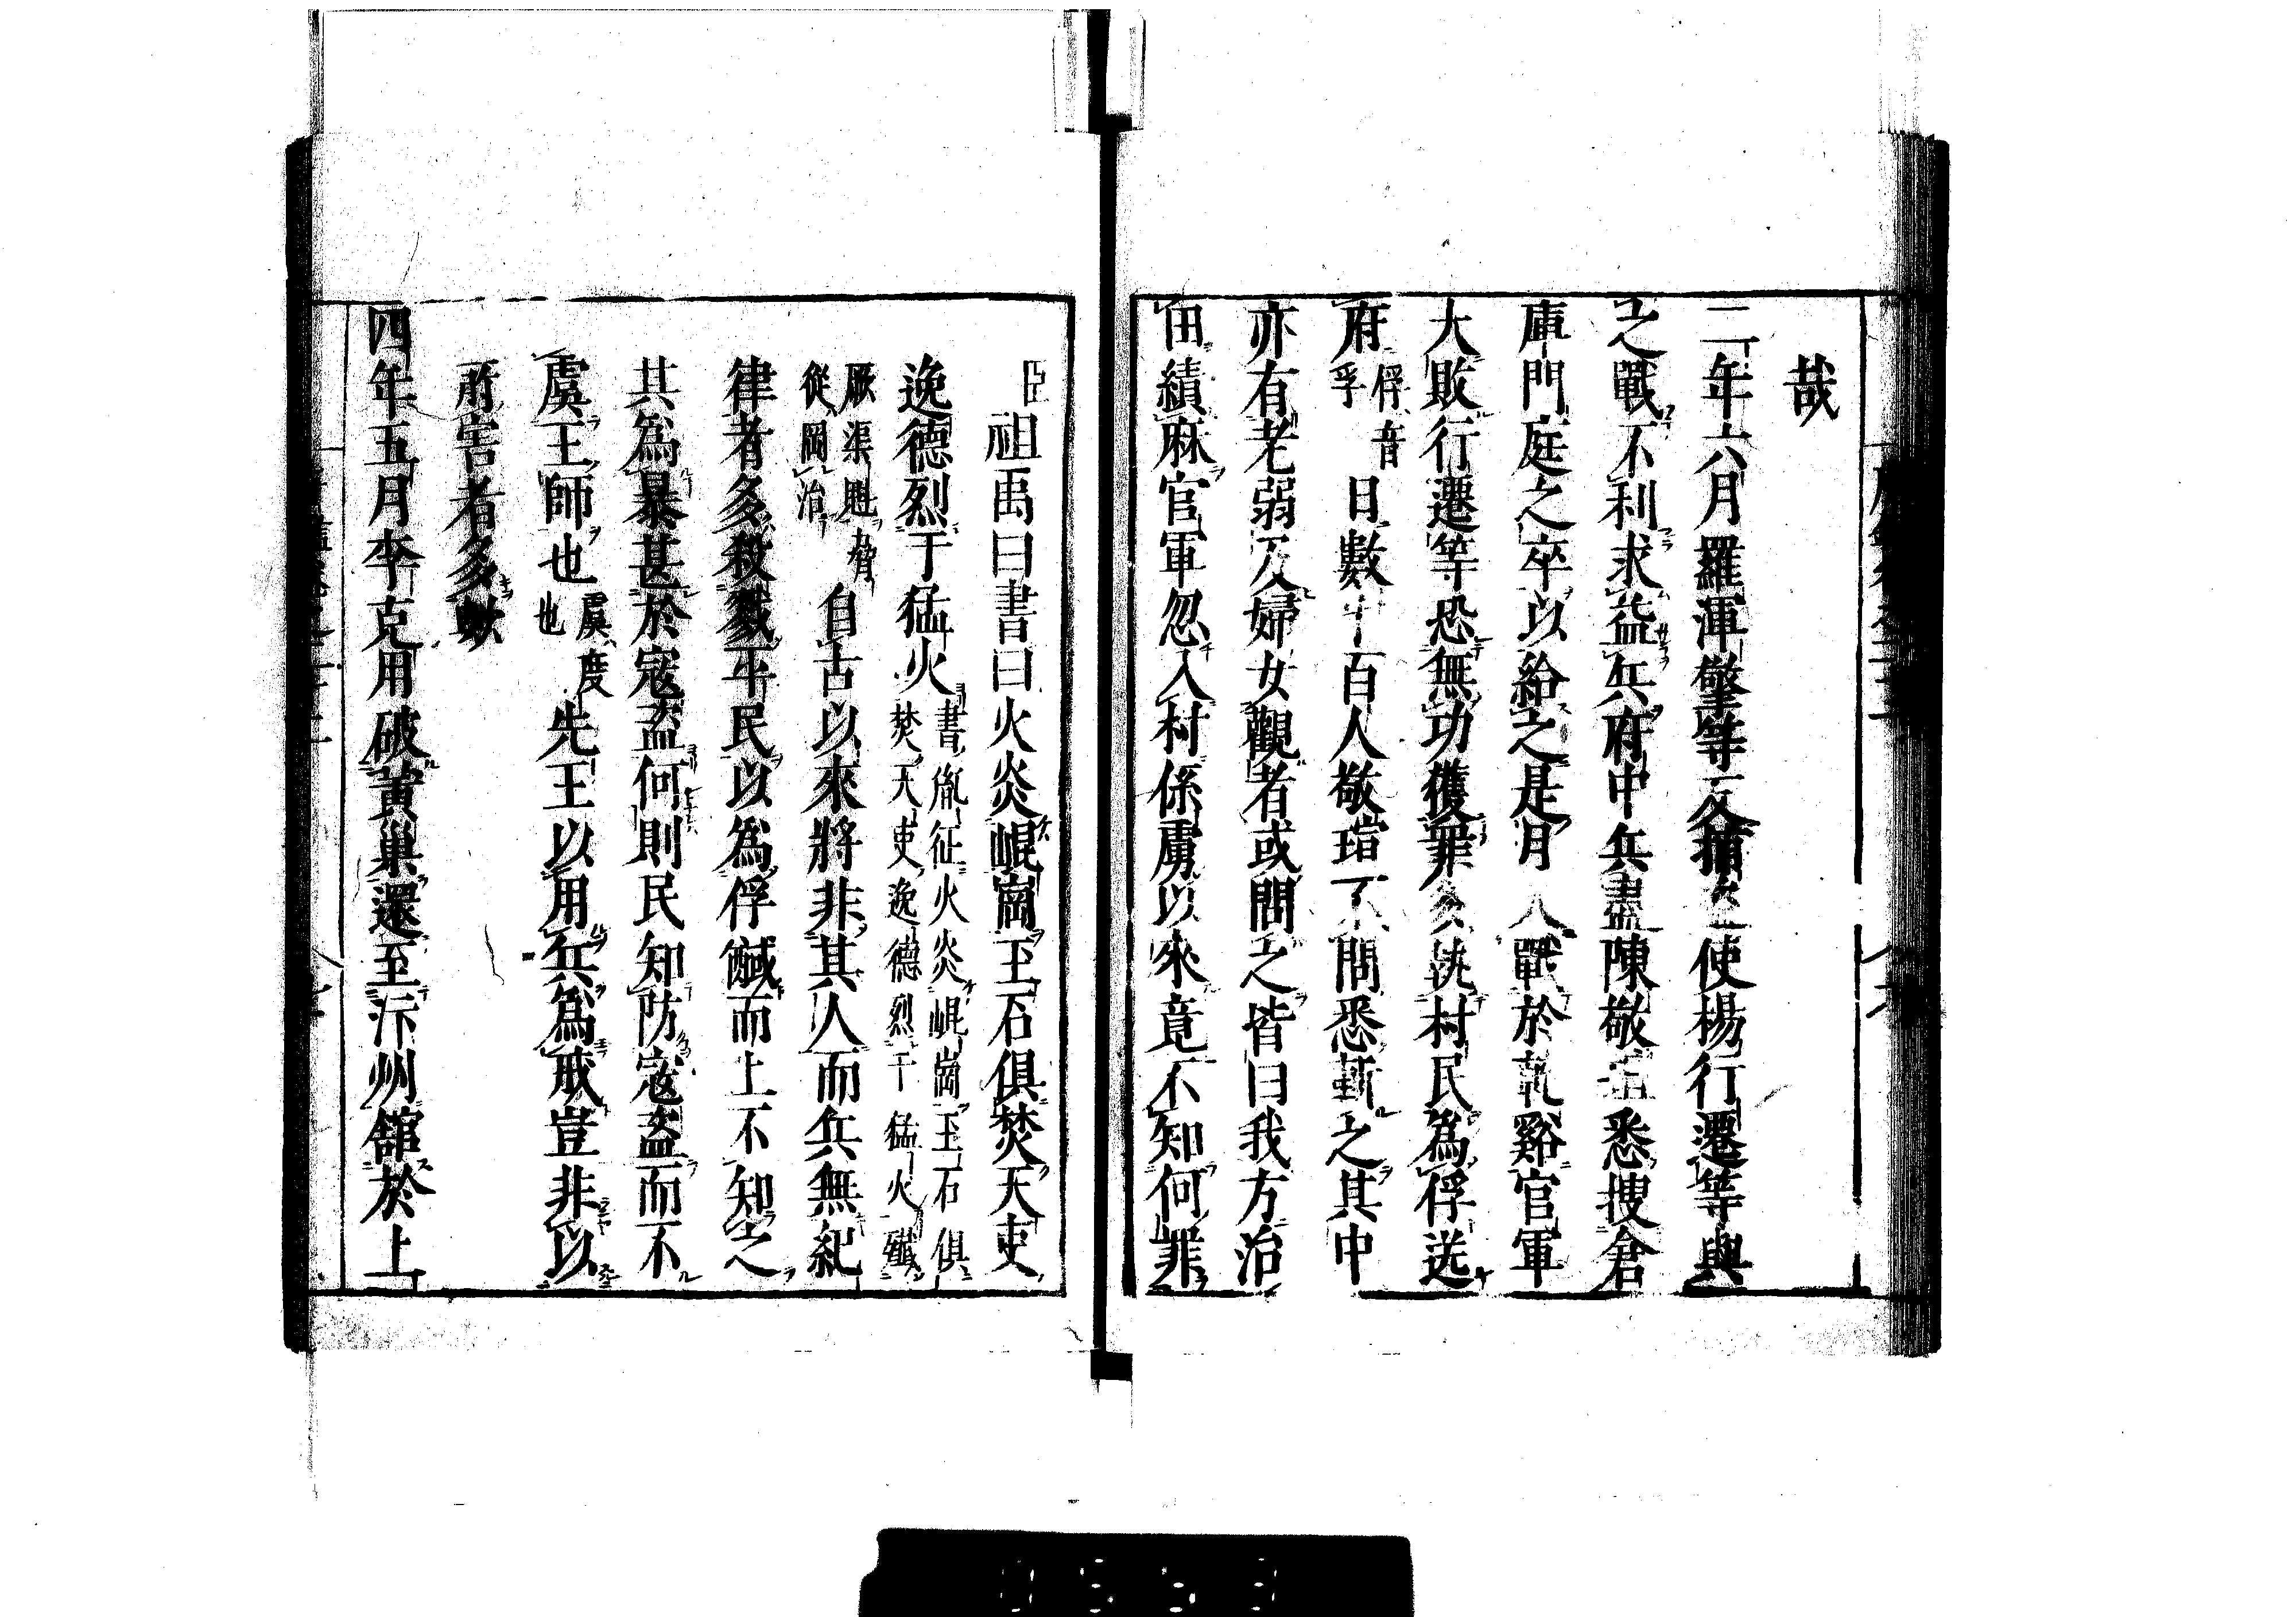 哉
二年六月羅渾擎等反捕之使楊行遷等與
之戰不利求益兵府中兵盡陳敬瑄悉搜倉
庫門庭之卒以給之是月大戰於乾谿官軍
大敗行遷等恐無功獲罪多執村民爲俘送
府俘音孚日數十百人敬瑄不問悉斬之其中
亦有老弱及婦女觀者或問之皆曰我方治
田績麻官軍忽入村係虜以來竟不知何罪
臣祖禹曰書曰火炎崐崗玉石俱焚天吏
逸德烈于猛火書胤征火炎崐崗玉石俱焚天吏逸德烈于猛火殲
厥渠魁脅從罔治自古以來將非其人而兵無紀
律者多殺戮平民以爲俘馘而上不知之
其爲暴甚於寇盗何則民知防寇盗而不
虞王師也虞度也先王以用兵爲戒豈非以
所害者多歟
四年五月李克用破黃巢還至汴州舘於上